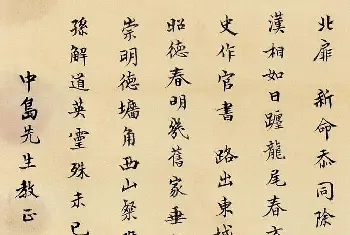 北扉 新命忝同除
漢相如日躔龍尾春
史作官書 路出東城
昭德春明幾舊家垂
崇明德墻角西山粲
孫解道英靈殊未已
中島先生教正